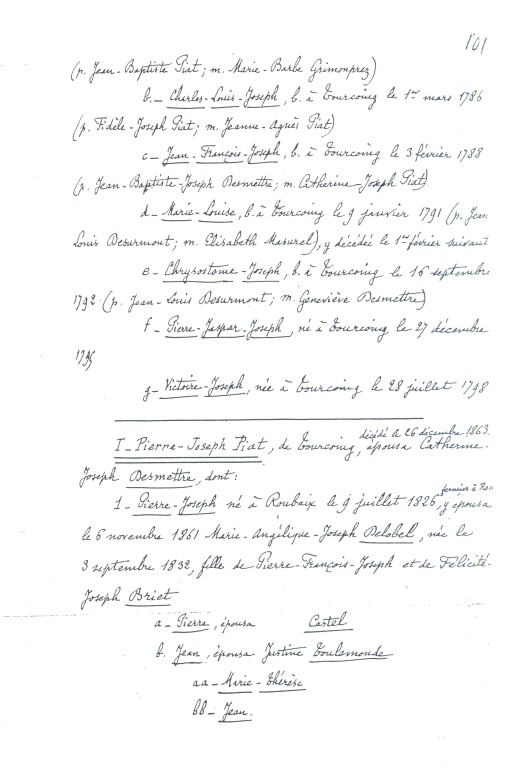 101
(p. Jean-Baptiste Piat ; m. Marie-Barbe Grimonprez)
b. _ Charles-Louis-Joseph, b. à Tourcoing le 1er mars 1786
(p. Fidèle-Joseph Piat ; m. Jeanne-Agnès Piat)
c _ Jean-François-Joseph, b. à Tourcoing le 3 février 1788
(p. Jean-Baptiste-Joseph Desmettre ; m. Catherine-Joseph Piat)
d _ Marie-Louise, b. à Tourcoing le 9 janvier 1791 (p. Jean
Louis Desurmont ; m. Elisabeth Masurel), y décédée le 1er février suivant
e _ Chrysostome-Joseph, b. à Tourcoing le 16 septembre
1792 (p. Jean-Louis Desurmont ; m. Geneviève Desmettre)
f _ Pierre-Jaspar-Joseph, né à Tourcoing le 27 décembre
1795
g _ Victoire-Joseph, née à Tourcoing le 28 juillet 1798
décédé le 26 décembre 1863.
I _ Pierre-Joseph Piat, de Tourcoing, épousa Catherine-
Joseph Desmettre, dont :
fermier à Rou
1 _ Pierre-Joseph né à Roubaix le 9 juillet 1826, y épousa
le 6 novembre 1861 Marie-Angélique-Joseph Delobel, née le
3 septembre 1832, fille de Pierre-François-Joseph et de Félicité-
Joseph Briet
a _ Pierre, épousa Castel
b. Jean, épousa Justine Toulemonde
aa _ Marie-Thérèse
bb _ Jean.